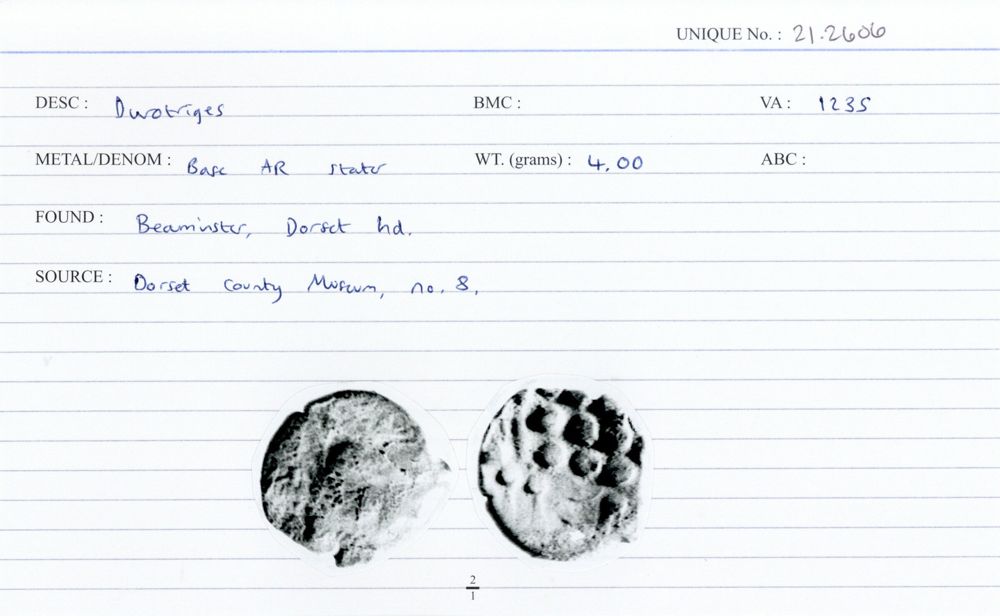 UNIQUE No. : 21.2606
DESC : Durotriges BMC : VA : 1235
METAL/DENOM : Base AR stater WT. (grams) : 4.00 ABC :
FOUND : Beaminster, Dorset hd.
SOURCE : Dorset County Museum, no. 8.
2
1